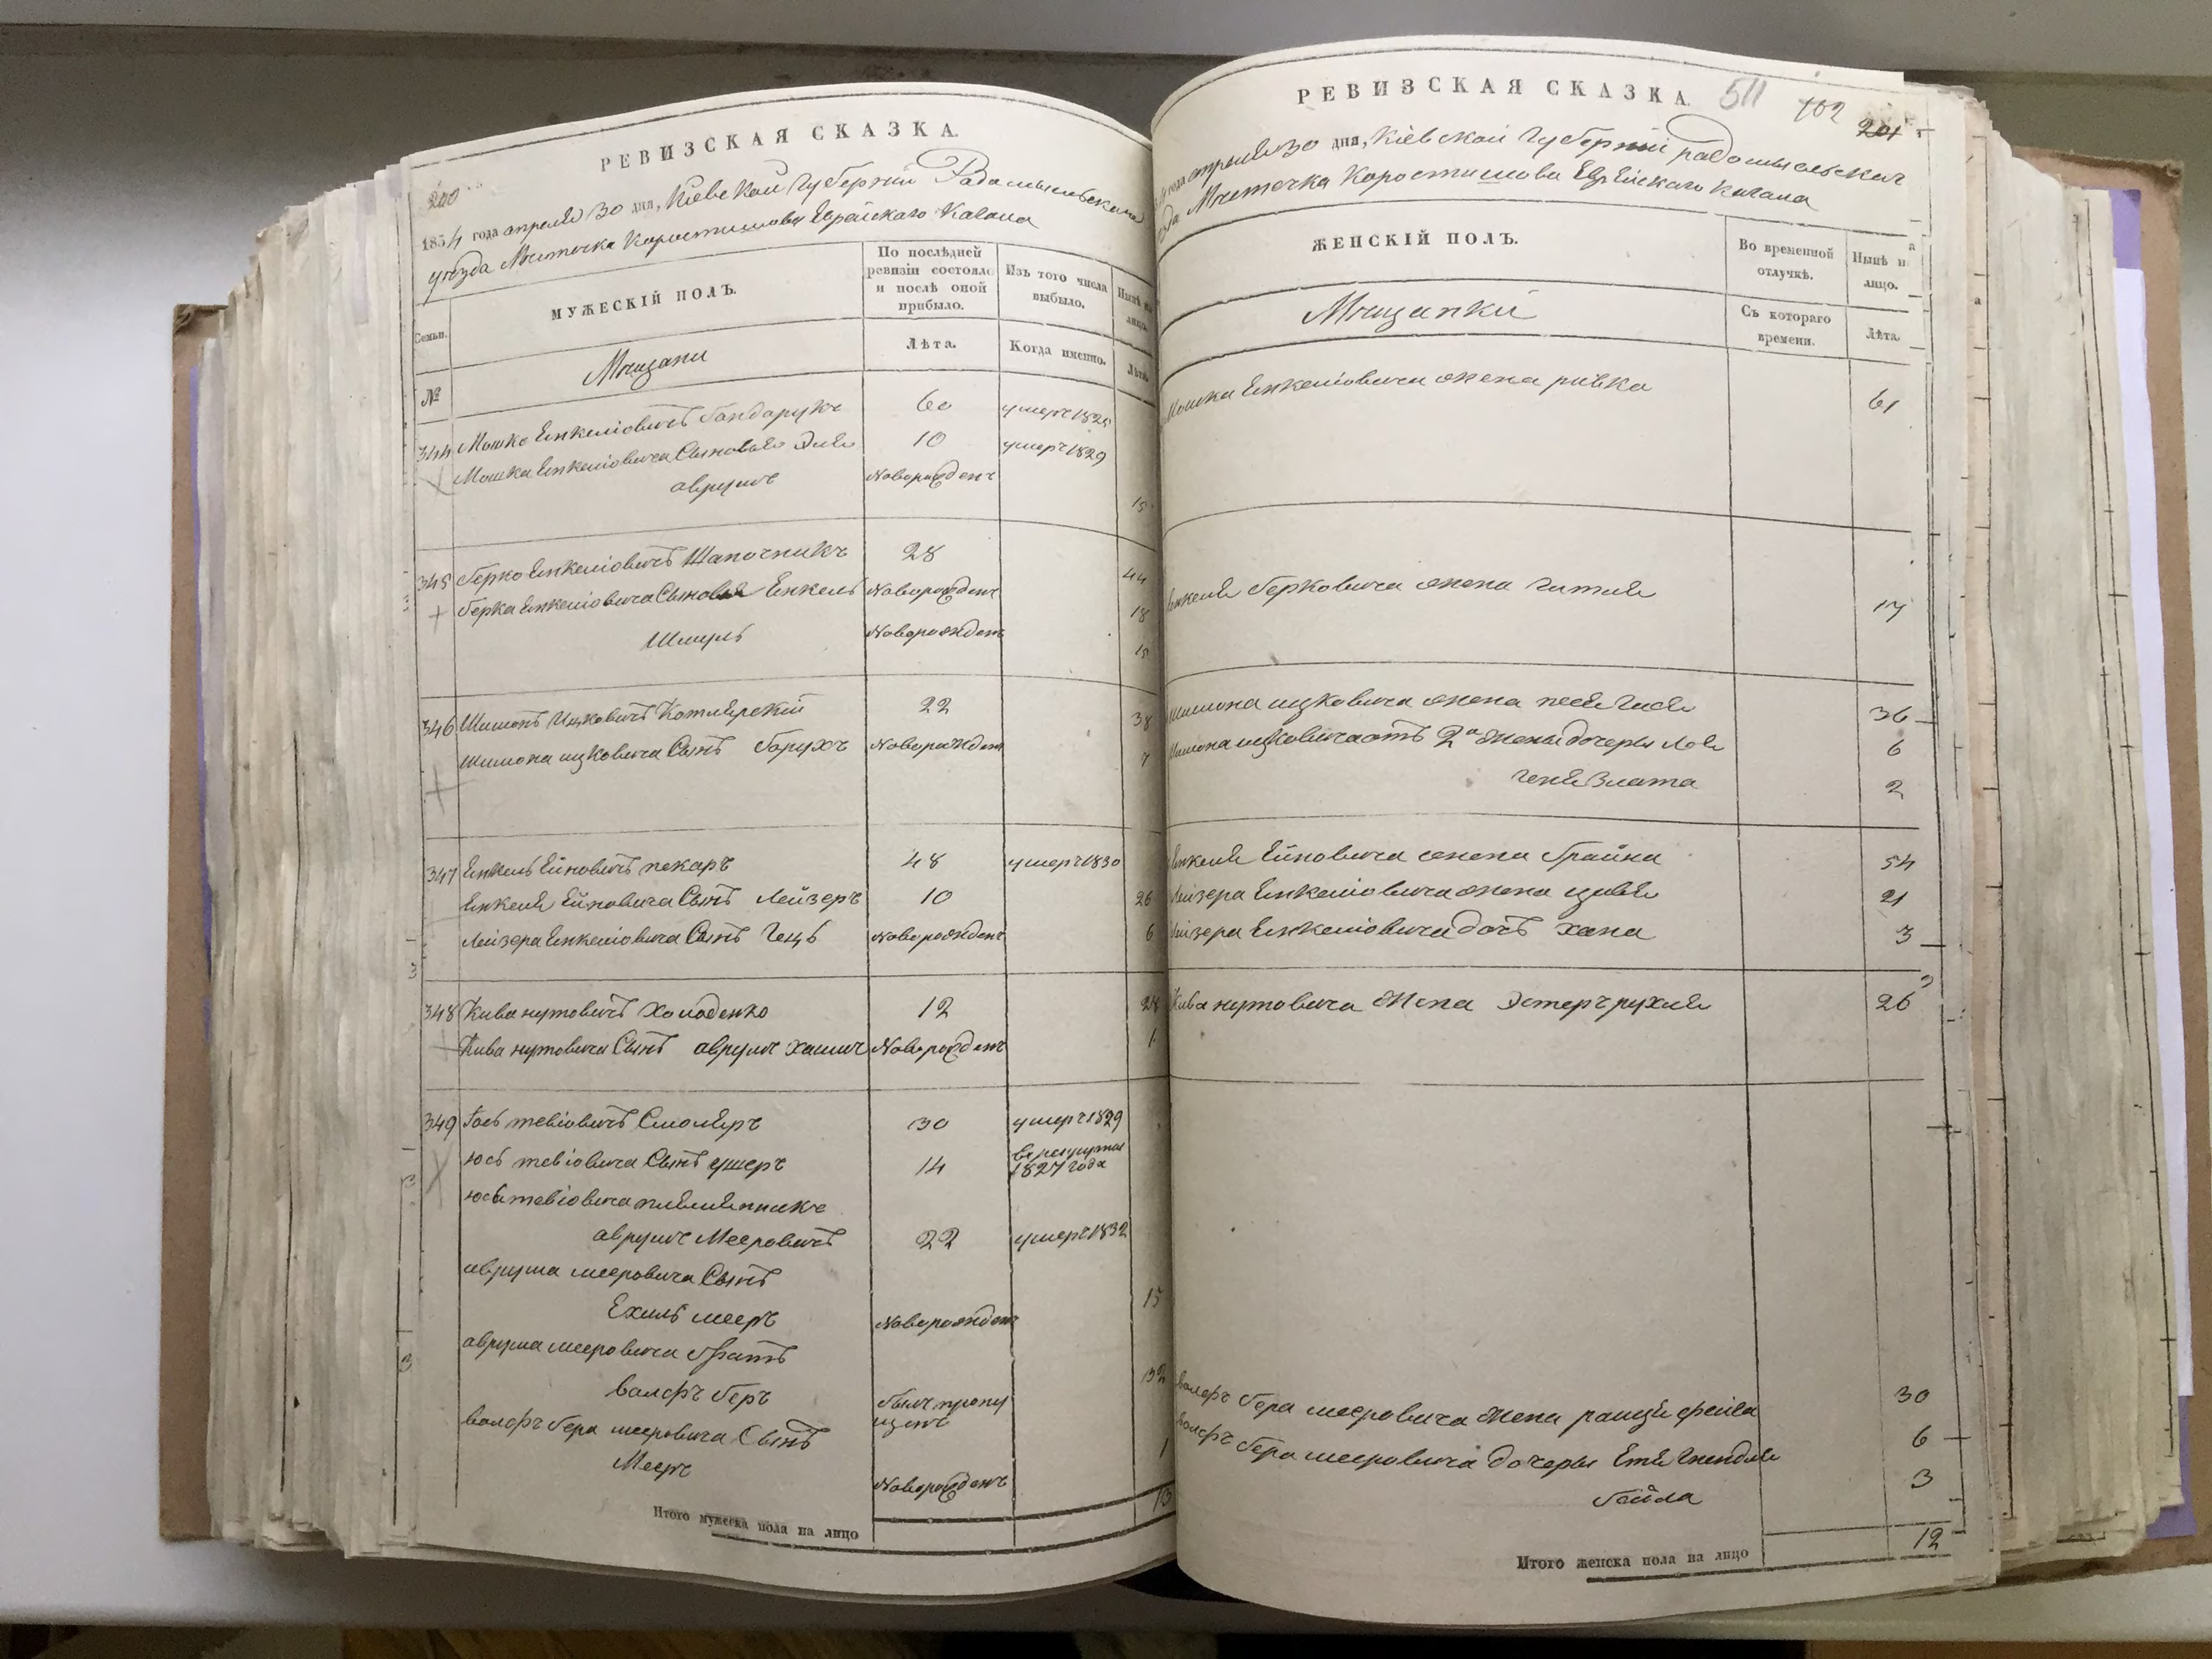 РЕВИЗСКАЯ СКАЗКА.
200
1834 года апреля 30 дня, Кіевской Губерніи Радомысльскаго
уезда Местечка Коростишова Еврейскаго Кагала
Семьи.
МУЖЕСКІЙ ПОЛЪ.
По послѣдней ревизіи состояло и послѣ оной прибыло.
Изъ того числа выбыло.
Нынѣ на лицо.
№
Мещани
Лѣта.
Когда именно.
Лѣта.
344 Мошко Енкеліовичъ Бондарукъ 60 умеръ 1825
Мошка Енкеліовича Сыновья Эля 10 умеръ 1829
аврумъ Новорожденъ 15
345 Герко Енкеліовичъ Шапочникъ 28 44
Герка Енкеліовича Сыновья Енкель Новорожденъ 18
Шмуль Новорожденъ 15
346 Шимонъ Ицковичъ Котлярскій 22 38
Шимона ицковича Сынъ Борухъ Новорожден 7
347 Енкель Ейновичъ пекаръ 48 умеръ 1830
Енкеля Ейновича Сынъ Лейзеръ 10 26
Лейзера Енкеліовича Сынъ Гецъ Новорожденъ 6
348 Кива нутовичъ Холоденко 12 28
Кива нутовича Сынъ аврумъ хаимъ Новорожденъ 1
349 Іось тевіовичъ Смоляръ 30 умеръ 1829
юсь тевіовича Сынъ ушеръ 14 в рекруты 1827 года
юся тевіовича племянникъ
аврумъ Мееровичъ 22 умеръ 1832
аврума мееровича Сынъ
Ехиль мееръ Новорожден 15
аврума мееровича братъ
волфъ беръ былъ пропущенъ 32
волфъ бера мееровича Сынъ
Мееръ Новорожденъ 1
Итого мужеска пола на лицо 13
РЕВИЗСКАЯ СКАЗКА.
511 102 201
года апреля 30 дня, Кіевской Губерніи радомысльскаг
да Местечка Коростишова Еврейскаго Кагала
ЖЕНСКІЙ ПОЛЪ.
Во временной отлучкѣ.
Нынѣ на лицо.
Мещанки
Съ котораго времени.
Лѣта.
Мошка Енкеліовича жена ривка 61
Енкеля Герковича жена гитля 17
Шимона ицковича жена песя гися 36
Шимона ицковича отъ 2й жены дочеры Лея 6
геня Злата 2
Енкеля Ейновича жена брайна 54
Лейзера Енкеліовича жена цивя 21
Лейзера Енкеліовича дочь хана 3
Кива нутовича жена Эстеръ рухля 26
волфъ бера мееровича жена ранця фейга 30
волфъ бера мееровича дочеры Етя гнендля 6
бейла 3
Итого женска пола на лицо 12